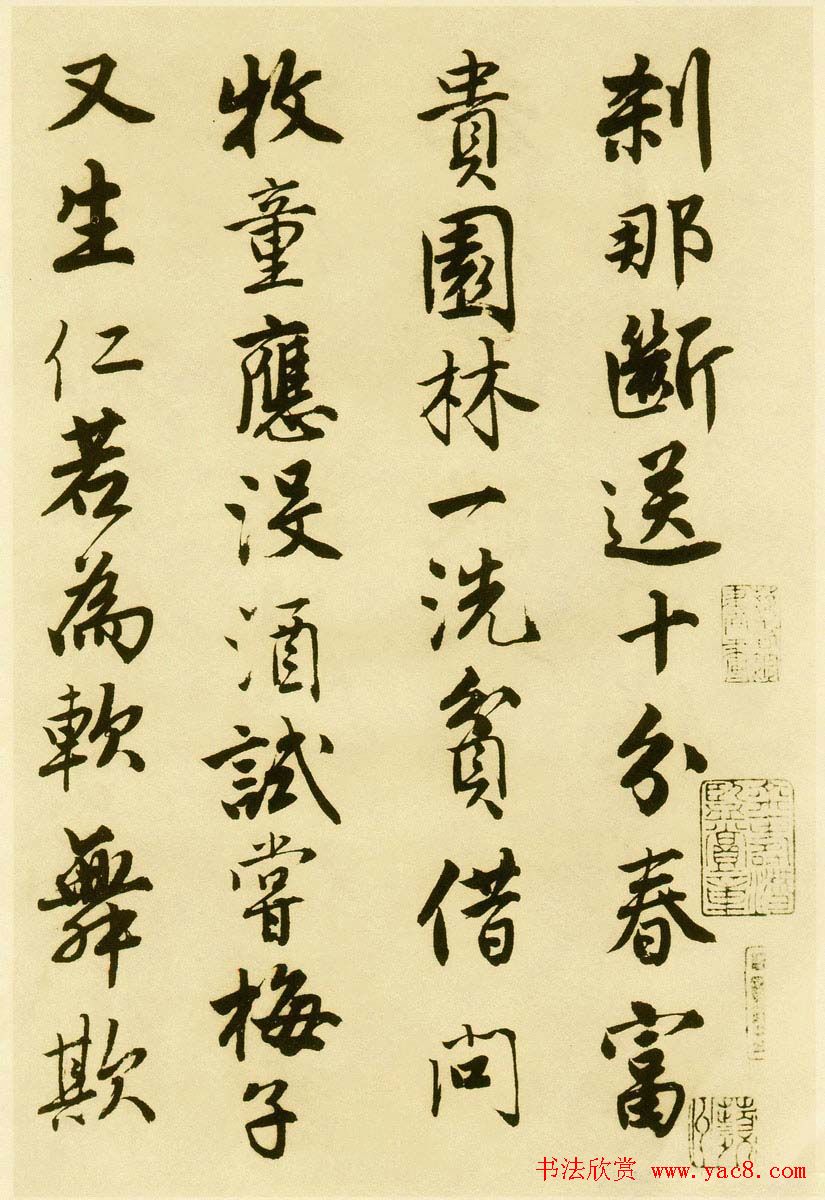 刹那斷送十分春富
貴園林一洗貧借問
牧童應没酒試嘗梅子
又生仁若為軟舞欺
书法欣赏 www.yac8.com